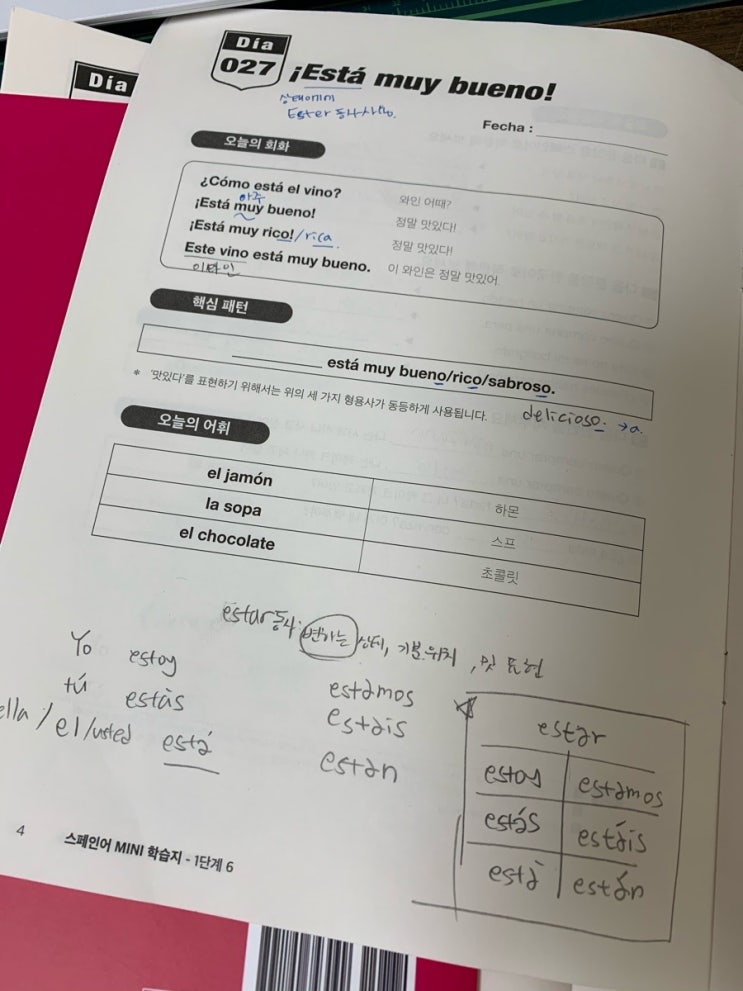 Día
Día
027
¡Está muy bueno!
상태에서
Ester 동사사용.
Fecha :
오늘의 회화
¿Cómo está el vino? 와인 어때?
아주
¡Está muy bueno! 정말 맛있다!
¡Está muy rico!/rica. 정말 맛있다!
Este vino está muy bueno. 이 와인은 정말 맛있어.
이 와인
핵심 패턴
está muy bueno/rico/sabroso.
* '맛있다'를 표현하기 위해서는 위의 세 가지 형용사가 동등하게 사용됩니다.
delicioso → a.
오늘의 어휘
el jamón 하몬
la sopa 스프
el chocolate 초콜릿
estar동사: 변하는 상태, 기분.위치, 맛 표현
Yo estoy estamos
tú estàs estàis
ella/el/usted està estan
estar
estoy estamos
estás estáis
està están
4 스페인어 MINI 학습지 - 1단계 6